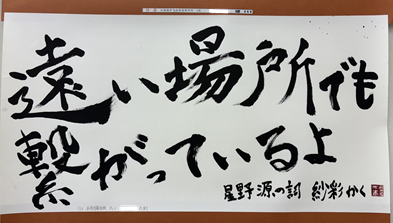 遠い場所でも
繋がっているよ
星野源の詞 紗彩かく